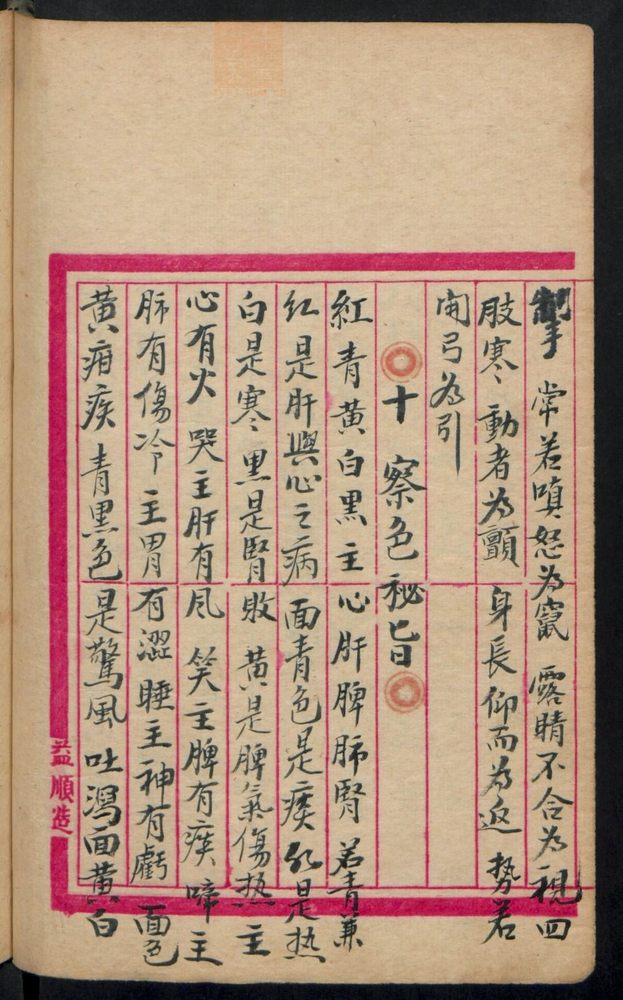 掣 常若嗔怒為竄 露睛不合為視 四
肢寒 動者為顫 身長仰而為返 势若
開弓為引
十 察色秘旨
紅青黄白黒主心肝脾肺腎 若青兼
红是肝與心之病 面青色是痰 红是热
白是寒 黒是腎敗 黄是脾氣傷热 主
心有火 哭主肝有风 笑主脾有痰 啼主
肺有傷冷 主胃有澀 睡主神有虧 面色
黄疳疾 青黒色是驚風 吐瀉面黄白
益順造